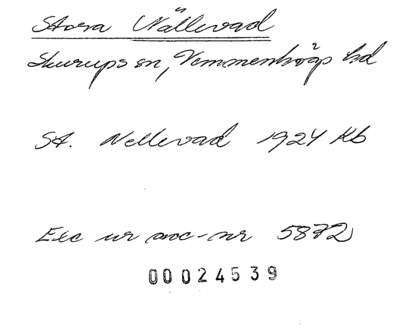 Stora Nällevad
Skurups sn, Vemmenhögs hd
St. Nellevad 1924 Kb
Exc ur acc-nr 5872
00024539